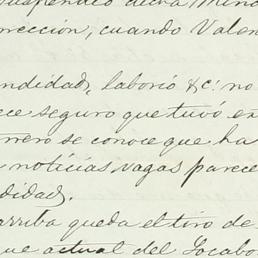 suspendió dicha Mina
rrección, cuando Valen
ndidad, laborió &c: no
ece seguro que tuvó en
rrero se conoce que ha
noticias vagas parece
didad.
arriba queda el tiro de
que actual del Socabo